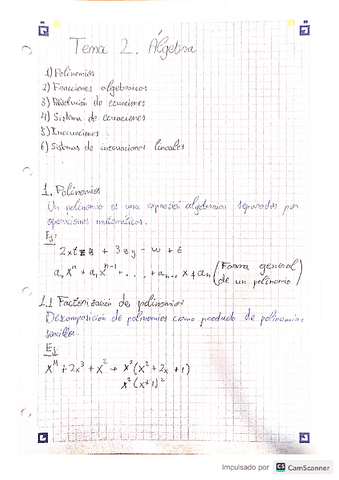 Tema 2. Álgebra
1) Polinomios
2) Fracciones algebraicas
3) Resolución de ecuaciones
4) Sistema de ecuaciones
5) Inecuaciones
6) Sistemas de inecuaciones lineales
1. Polinomios
Un polinomio es una expresión algebraica separadas por
operaciones matemáticas.
Ej:
+ 3zy - w + 
a₀xⁿ + a₁xⁿ⁻¹ + . . . + aₙ₋₁ x + aₙ (Forma general
de un polinomio)
1.1 Factorización de polinomios
Descomposición de polinomios como producto de polinomios
sencillos.
Ej
x⁴ + 2x³ + x² → x²(x² + 2x + 1)
x²(x+1)²
Impulsado por CS CamScanner